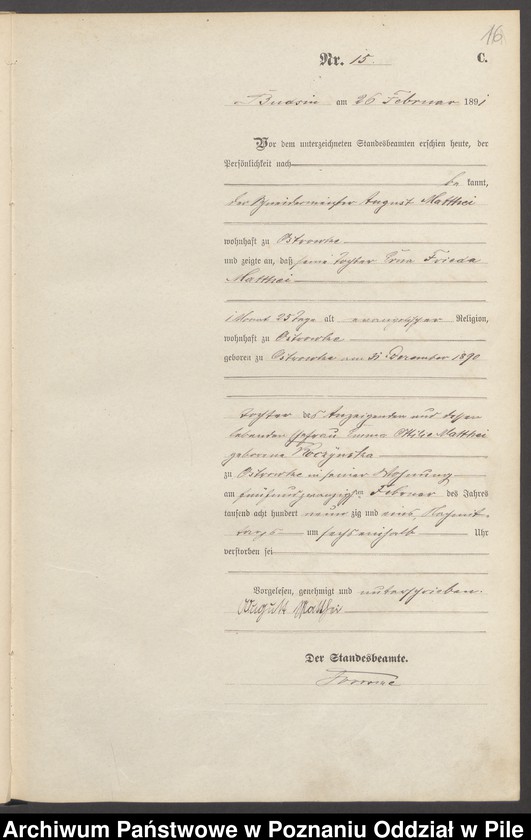 16.
Nr. 15. C.
Budsin am 26 Februar 1891
Vor dem unterzeichneten Standesbeamten erschien heute, der
Persönlichkeit nach
be kannt,
der Schneidermeister August Matthei
wohnhaft zu Ostrowke
und zeigte an, daß seine Tochter Erna Frieda
Matthei
1 Monat 25 Tage alt evangelischer Religion,
wohnhaft zu Ostrowke
geboren zu Ostrowke am 31 Dezember 1890
Tochter des Anzeigenden und dessen
lebenden Ehefrau Emma Ottilie Matthei
geborene
zu Ostrowke in seiner Wohnung
am fünfundzwanzigsten Februar des Jahres
tausend acht hundert neun zig und eins, Nachmit-
tags um sechs einhalb Uhr
verstorben sei
Vorgelesen, genehmigt und unterschrieben.
August Matthei
Der Standesbeamte.
Archiwum Państwowe w Poznaniu Oddział w Pile